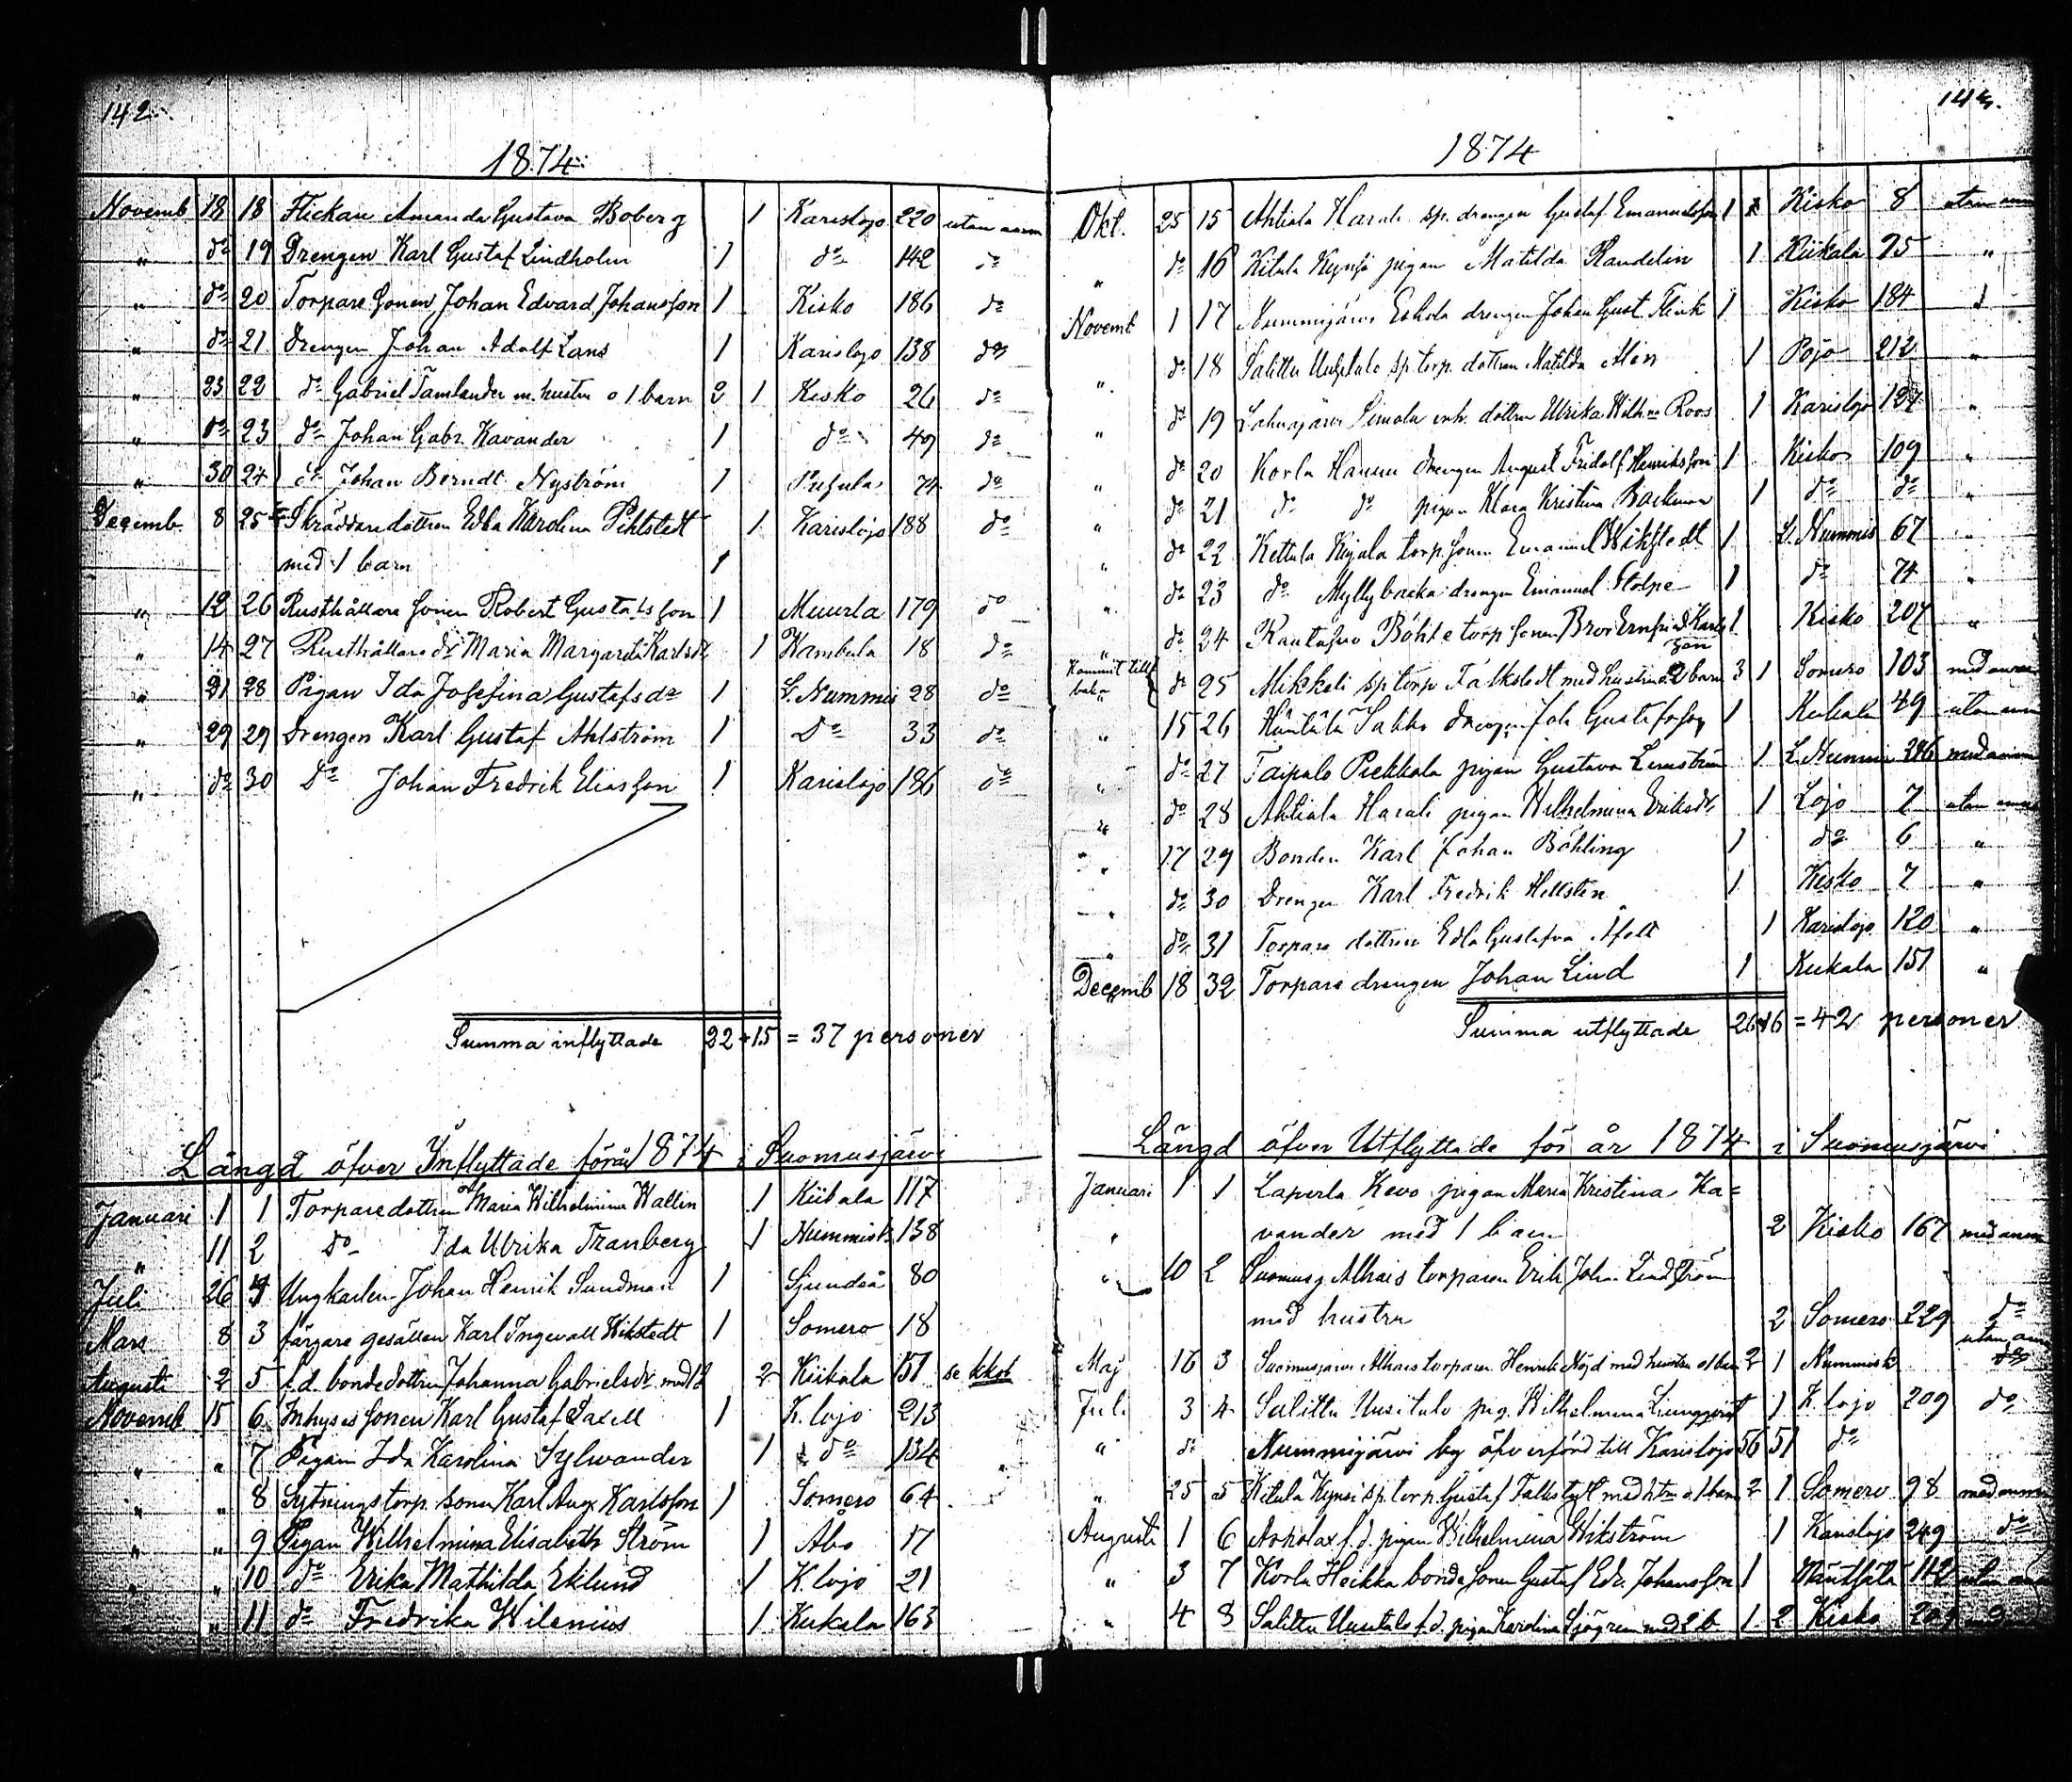 142.
1874
Novemb 18 18 Flickan Amanda Gustava Boberg 1 Karislojo 220 utan anm
" do 19 Drengen Karl Gustaf Lindholm 1 do 142 do
" do 20 Torpare sonen Johan Edvard Johansson 1 Kisko 186 do
" do 21 Drengen Johan Adolf Lans 1 Karislojo 138 do
" 23 22 do Gabriel Tamlander m. hustru o 1 barn 2 1 Kisko 26 do
" do 23 do Johan Gabr. Kavander 1 do 49 do
" 30 24 do Johan Berndt Nyström 1 Pusula 74 do
Decemb. 8 25 Skräddaredottren Edla Karolina Pihlstedt 1 Karislojo 188 do
med 1 barn 1
" 12 26 Rusthållare sonen Robert Gustafsson 1 Muurla 179 do
" 14 27 Rusthållare dr Maria Margareta Karlsdr 1 Kambula 18 do
" 21 28 Pigan Ida Josefina Gustafsdr 1 L. Nummis 28 do
" 29 29 Drengen Karl Gustaf Ahlström 1 Do 33 do
" do 30 Do Johan Fredrik Eliasson 1 Karislojo 186 do
Summa inflyttade 22 + 15 = 37 personer
Längd öfver Inflyttade för år 1874 i Suomusjärvi
Januari 1 1 Torparedottren Maria Wilhelmina Wallin 1 Kiikala 117
" 11 2 do Ida Ulrika Tranberg 1 Nummis 138
Juli 26 4 Ungkarlen Johan Henrik Sundman 1 Sjundeå 80
Mars 8 3 färgare gesällen Karl Ingevall Wikstedt 1 Somero 18
Augusti 2 5 f.d. bondedottren Johanna Gabrielsdr med 1 b 2 Kiikala 151 se
Novemb 15 6 Inhyses sonen Karl Gustaf Laxell 1 K. lojo 213
" " 7 Pigan Ida Karolina Sylwander 1 do 134
" " 8 Sytningstorp. sonen Karl Aug. Karlsson 1 Somero 64
" " 9 Pigan Wilhelmina Elisabeth Ström 1 Åbo 17
" " 10 do Erika Mathilda Eklund 1 K. lojo 21
" 11 do Fredrika Wilenius 1 Kiikala 163
143.
1874
Okt. 25 15 Ahtiala Harali sp. drengen Gustaf Emanuelsson 1 Kisko 8 utan anm
" do 16 Kitula Kynsi pigan Matilda Randelin 1 Kiikala 95 "
Novemb 1 17 Nummijärvi Eskola drengen Johan Gust. Flink 1 Kisko 184
" do 18 Salittu Uusitalo sp. torp. dottren Matilda Alen 1 Pojo 212 "
" do 19 Lahnajärvi Simola inh. dottren Ulrika Wilhna Roos 1 Karislojo "
" do 20 Korla Hannu drengen August Fridolf Henriksson 1 Kisko 109 "
" do 21 do do pigan Klara Kristina Backman 1 do do "
" do 22 Kettula Kujala torp. sonen Emanuel Wikstedt 1 L. Nummis 67 "
" do 23 do Myllybacka drengen Emanuel Stolpe 1 do 74 "
" do 24 Rantasuo Böhle torp. sonen Bror Ernfrid Karls 1 Kisko 207 "
son
Kommit till do 25 Mikkeli sp torp Falkstedt med hustru o 2 barn 3 1 Somero 103 med anm
" 15 26 Häntälä Sakko drengen Joh Gustafsson 1 Kiikala 49 utan anm
" do 27 Taipale Piekkala pigan Gustava Lemström 1 L. Nummi 286 med anm
" do 28 Ahtiala Harali pigan Wilhelmina Eriksdr 1 Lojo 7 utan anm
" 17 29 Bonden Karl Johan Böhling 1 do 6 "
" do 30 Drengen Karl Fredrik Hellsten 1 Kisko 7 "
" do 31 Torpare dottren Edla Gustafva 1 Karislojo 120 "
Decemb 18 32 Torpare drengen Johan Lind 1 Kiikala 151 "
Summa utflyttade 26+16 = 42 personer
Längd öfver Utflyttade för år 1874 i Suomusjärvi
Januari 1 1 Laperla Kevo pigan Maria Kristina Ka=
" vander med 1 barn 2 Kisko 167 med anm
" 10 2 Suomusj. Alhais torparen Erik Johan Lindström
med hustru 2 Somero 229 do
Maj 16 3 Suomusjärvi Alhais torparen Henrik Nöjd med hustru o 1 barn 2 1 Nummis utan anm
Juli 3 4 Salittu Uusitalo pig. Wilhelmina Liungqvist 1 K. lojo 209 do
" do Nummijärvi by öfverförd till Karislojo 56 51 do
" 25 5 Kitula Kynsi sp. torp. Gustaf Falkstedt med htru o 1 barn 2 1 Somero 98 med anm
Augusti 1 6 Arpolax f.d. pigan Wilhelmina Wikström 1 Karislojo 249 do
" 3 7 Korla Heikka bonde sonen Gustaf Edv. Johansson 1 Mäntsälä 112 utan anm
" 4 8 Salittu Uusitalo f.d. pigan Karolina Sjögren med 2 b 1 2 Kisko 209